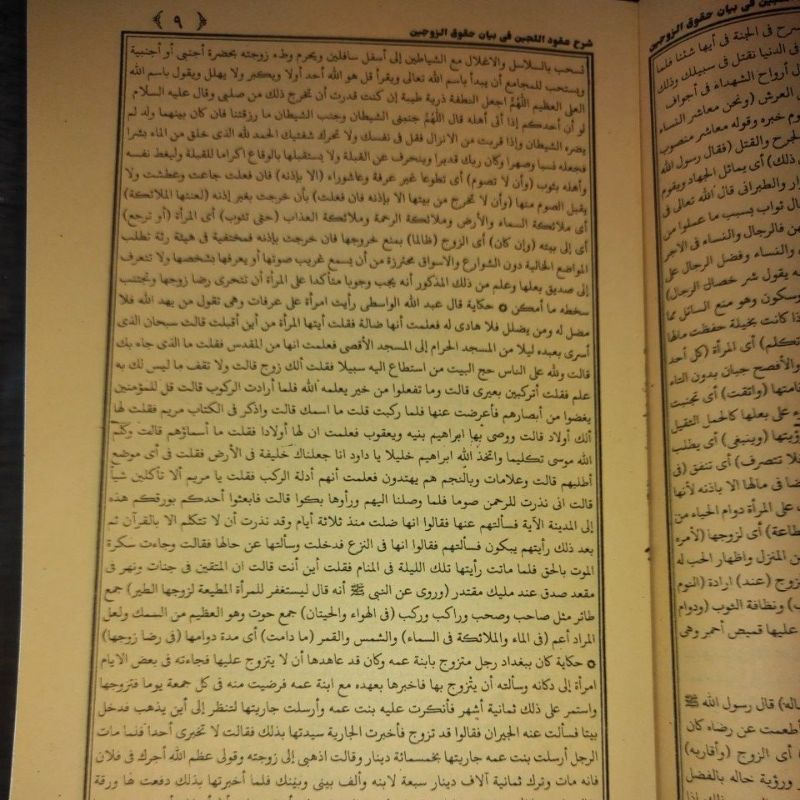 شرح عقود اللجين في بيان حقوق الزوجين
﴿ ٩ ﴾
تسحب بالسلاسل والاغلال مع الشياطين إلى أسفل سافلين ويحرم وطء زوجته بحضرة أجنبي أو أجنبية
ويستحب للمجامع أن يبدأ باسم الله تعالى ويقرأ قل هو الله أحد أولا ويكبر ولا يهلل ويقول باسم الله
العلى العظيم اللهم اجعل النطفة ذرية طيبة إن كنت قدرت أن تخرج ذلك من صلبي وقال عليه السلام
لو أن أحدكم إذا أتى أهله قال اللهم جنبني الشيطان وجنب الشيطان ما رزقتنا فان كان بينهما ولد لم
يضره الشيطان وإذا قربت من الانزال فقل في نفسك ولا تحرك شفتيك الحمد لله الذى خلق من الماء بشرا
فجعله نسبا وصهرا وكان ربك قديرا وينحرف عن القبلة ولا يستقبلها بالوقاع اكراما للقبلة وليغط نفسه
وأهله بثوب (وأن لا تصوم) أى تطوعا غير عرفة وعاشوراء (الا بإذنه) فان فعلت جاعت وعطشت ولا
يقبل الصوم منها (وأن لا تخرج من بيتها الا بإذنه فان فعلت) بأن خرجت بغير إذنه (لعنتها الملائكة)
أى ملائكة السماء والأرض وملائكة الرحمة وملائكة العذاب (حتى تتوب) أى المرأة (أو ترجع)
أى إلى بيته (وإن كان) أى الزوج (ظالما) بمنع خروجها فان خرجت بإذنه فمختفية في هيئة رثة تطلب
المواضع الخالية دون الشوارع والاسواق محترزة من أن يسمع غريب صوتها أو يعرفها بشخصها ولا تتعرف
إلى صديق بعلها وعلم من ذلك المذكور أنه يجب وجوبا متأكدا على المرأة أن تتحرى رضا زوجها وتجتنب
سخطه ما أمكن ۞ حكاية قال عبد الله الواسطى رأيت امرأة على عرفات وهى تقول من يهد الله فلا
مضل له ومن يضلل فلا هادى له فعلمت أنها ضالة فقلت أيتها المرأة من أين أقبلت قالت سبحان الذى
أسرى بعبده ليلا من المسجد الحرام إلى المسجد الأقصى فعلمت انها من المقدس فقلت ما الذى جاء بك
قالت ولله على الناس حج البيت من استطاع اليه سبيلا فقلت ألك زوج قالت ولا تقف ما ليس لك به
علم فقلت أتركبين بعيرى قالت وما تفعلوا من خير يعلمه الله فلما أرادت الركوب قالت قل للمؤمنين
يغضوا من أبصارهم فأعرضت عنها فلما ركبت قلت ما اسمك قالت واذكر في الكتاب مريم فقلت لها
ألك أولاد قالت ووصى بها ابراهيم بنيه ويعقوب فعلمت ان لها أولادا فقلت ما أسماؤهم قالت وكلم
الله موسى تكليما واتخذ الله ابراهيم خليلا يا داود انا جعلناك خليفة في الأرض فقلت في أى موضع
أطلبهم قالت وعلامات وبالنجم هم يهتدون فعلمت أنهم أدلة الركب فقلت يا مريم ألا تأكلين شيأ
قالت انى نذرت للرحمن صوما فلما وصلنا اليهم ورأوها بكوا قالت فابعثوا أحدكم بورقكم هذه
إلى المدينة الآية فسألتهم عنها فقالوا انها ضلت منذ ثلاثة أيام وقد نذرت أن لا تتكلم الا بالقرآن ثم
بعد ذلك رأيتهم يبكون فسألتهم فقالوا انها في النزع فدخلت وسألتها عن حالها فقالت وجاءت سكرة
الموت بالحق فلما ماتت رأيتها تلك الليلة في المنام فقلت أين أنت قالت ان المتقين في جنات ونهر في
مقعد صدق عند مليك مقتدر (وروى عن النبي ﷺ أنه قال ليستغفر للمرأة المطيعة لزوجها الطير) جمع
طائر مثل صاحب وصحب وراكب وركب (في الهواء والحيتان) جمع حوت وهو العظيم من السمك ولعل
المراد أعم (في الماء والملائكة في السماء) والشمس والقمر (ما دامت) أى مدة دوامها (في رضا زوجها)
۞ حكاية كان ببغداد رجل متزوج بابنة عمه وكان قد عاهدها أن لا يتزوج عليها فجاءته في بعض الايام
امرأة إلى دكانه وسألته أن يتزوج بها فاخبرها بعهده مع ابنة عمه فرضيت منه في كل جمعة يوما فتزوجها
واستمر على ذلك ثمانية أشهر فأنكرت عليه بنت عمه وأرسلت جاريتها لتنظر إلى أين يذهب فدخل
بيتا فسألت عنه الجيران فقالوا قد تزوج فأخبرت الجارية سيدتها بذلك فقالت لا تخبرى أحدا فلما مات
الرجل أرسلت بنت عمه جاريتها بخمسمائة دينار وقالت اذهبى إلى زوجته وقولى عظم الله أجرك في فلان
فانه مات وترك ثمانية آلاف دينار سبعة لابنه وألف بيني وبينك فلما أخبرتها بذلك دفعت لها ورقة
في بيان حقوق الزوجين
شرح في الجنة في أيها شئنا فلما
في الدنيا نقتل في سبيلك وذلك
أرواح الشهداء في أجواف
العرش (ونحن معاشر النساء
خبره وقوله معاشر منصوب
الجرح والقتل (فقال رسول الله
ذلك) أى يماثل الجهاد ويقوم
والطبرانى قال الله تعالى في
ثواب بسبب ما عملوا من
فالرجال والنساء في الاجر
والنساء وفضل الرجال على
يقول شر خصال الرجال)
وسكون وهو منع السائل مما
كانت بخيلة حفظت مالها
تكلم) أى المرأة (كل أحد
والأفصح جبان بدون التاء
(واتقت) أى تجنبت
على بعلها كالحمل الثقيل
(وينبغى) أى يطلب
فلا تتصرف) أى تنفق (في
في مالها الا باذنه لأنها
على المرأة دوام الحياء من
أى لزوجها (لأمره
من المنزل واظهار الحب له
(عند) ارادة (النوم
ونظافة الثوب (ودوام
عليها قميص أحمر وهى
قال رسول الله ﷺ
أطعمت عن رضاه كان
أى الزوج (وأقاربه)
ورؤية حاله بالفضل